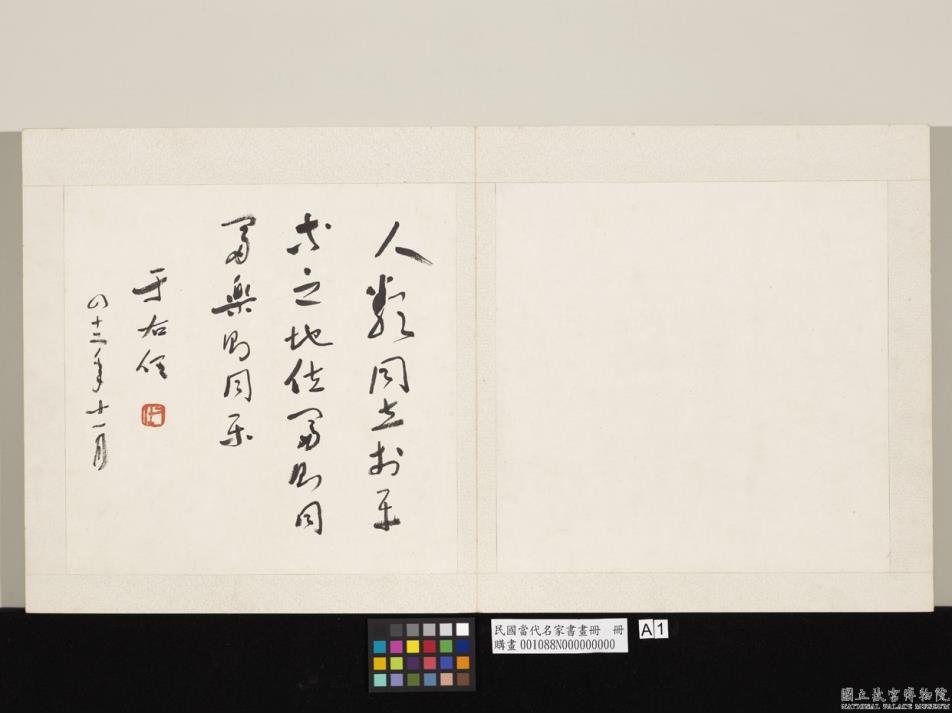 人類同立於平
等之地位富則同
富樂則同樂
于右任
四十三年十一月
民國當代名家書畫冊 冊
購畫 001088N000000000
A 1
國立故宮博物院
NATIONAL PALACE MUSEUM